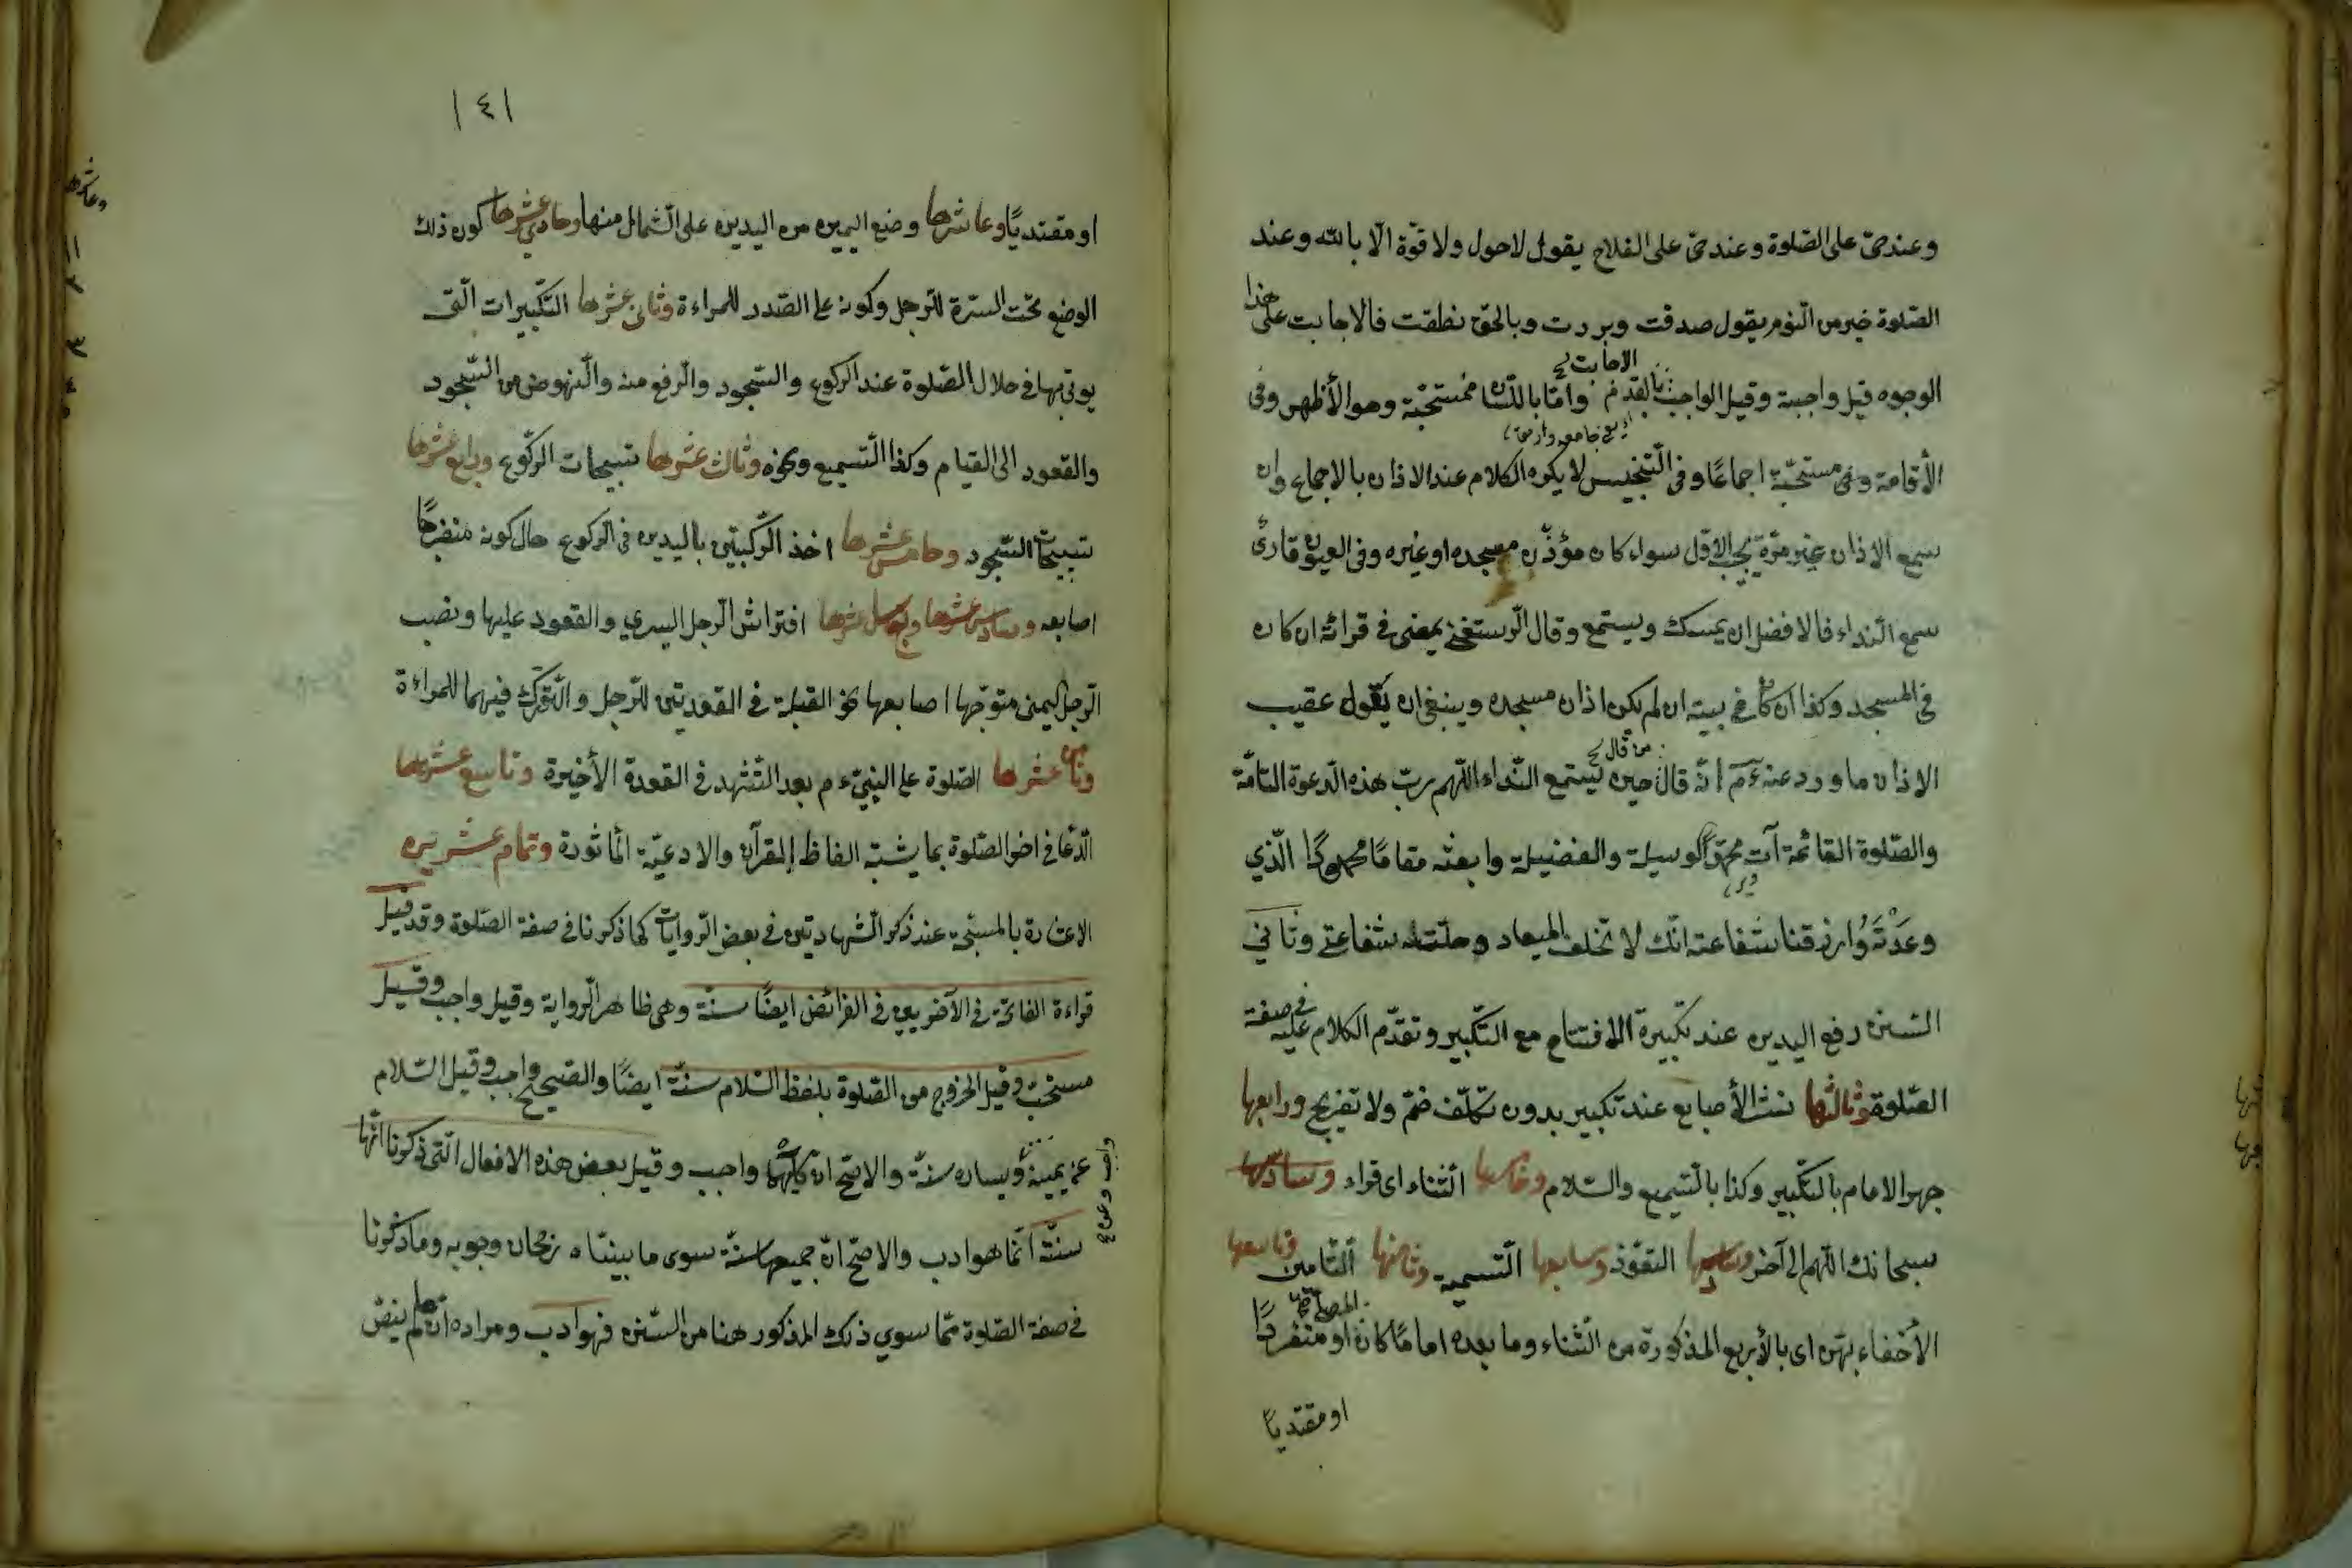 وعند حىّ على الصّلوة وعند حىّ على الفلاح يقول لاحول ولا قوّة الّا بالله وعند
الصّلوة خير من النّوم يقول صدقت وبررت وبالحقّ نطقت فالاجابت على هذا
الوجوه قيل واجبة وقيل الواجب الاجابت بالقدم وامّا باللسان فمستحبّة وهو الأظهر وفى
الأقامة وهى مستحبّة اجماعًا وفى التّجنيس لا يكره الكلام عند الاذان بالاجماع وان
سمع الاذان غير مرّة يجب الاوّل سواء كان مؤذّن مسجده او غيره وفى العيون قارئ
سمع النّداء فالافضل ان يمسك ويستمع وقال الرّستغفنى يمضى فى قرائة ان كان
فى المسجد وكذا ان كان فى بيته ان لم يكن اذان مسجده وينبغى ان يقول عقيب
الاذان ما ورد عنه ءم انّه قال من قال حين يستمع النّداء اللّهم ربّ هذه الدّعوة التامّة
والصّلوة القائمة آت محمّدًا الوسيلة والفضيلة وابعثه مقامًا محمودًا الّذي
وعَدْتَه وارزقنا شفاعته انّك لا تخلف الميعاد وحلّت له شفاعتى وثاني
السّنن رفع اليدين عند تكبيرة الافتتاح مع التّكبير وتقدّم الكلام عليه فى صفة
الصّلوة وثالثها نشر الأصابع عند تكبير بدون تكلّف ضمّ ولا تفريج ورابعها
جهر الامام بالتّكبير وكذا بالتّسميع والسّلام وخامسها الثّناء اى قراء وسادسها
سبحانك اللّهم الى آخر التعّوذ وسابعها التّسمية وثامنها التّامين وتاسعها
الأخفاء بهنّ اى بالأربع المذكورة من الثّناء وما بعده امامًا كان المصلّى او منفردًا
او مقتديًا
١٤١
او مقتديًا وعاشرها وضع اليمين من اليدين على الشّمال منها وحادي عشرها كون ذلك
الوضع تحت السّرة للرّجل وكونه على الصّدر للمراءة وثانى عشرها التّكبيرات الّتى
يوتى بها فى خلال الصّلوة عند الركوع والسّجود والرّفع منه والنّهوض من السّجود
والقعود الى القيام وكذا التّسميع ونحوه وثالث عشرها تسبيحات الرّكوع ورابع عشرها
تسبيحات السّجود وخامس عشرها اخذ الرّكبتين باليدين فى الرّكوع حال كونه منفرجًا
اصابعه وسادس عشرها افتراش الرّجل اليسري والقعود عليها ونصب
الرّجل اليمنى متوجّها اصابعها نحو القبلة فى القعدتين للرّجل والتّورّك فيهما للمراءة
وثامن عشرها الصّلوة على النبىّ ءم بعد التّشهد فى القعدة الأخيرة وتاسع عشرها
الدّعا فى اخر الصّلوة بما يشبه الفاظ القرآن والادعيّة المأثورة وتمام عشرين
الاشارة بالمسبّحة عند ذكر الشّهادتين فى بعض الرّوايات كما ذكرنا فى صفة الصّلوة وقد قيل
قراءة الفاتحة فى الآخريين فى الفرائض ايضًا سنّة وهى ظاهر الرّواية وقيل واجب وقيل
مستحبّ وقيل الخروج من الصّلوة بلفظ السّلام سنّة ايضًا والصّحيح واجب وقيل السّلام
عن يمينه ويساره سنّة والاصّح ان كليهما واجب وقيل بعض هذه الافعال الّتى ذكرنا انّها
سنّة انّما هو ادب والاصّح انّ جميعها سنّة سوى ما بيّنّاه رجحان وجوبه وما ذكرنا
فى صفة الصّلوة ممّا سوي ذلك المذكور هنا من السّنن فهو ادب ومراده انّه لم ينصّ